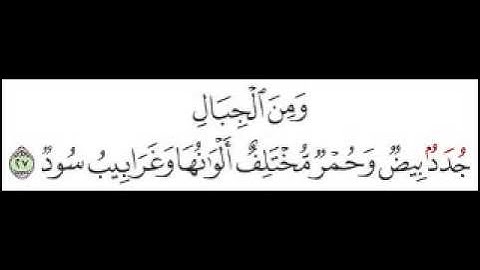 وَمِنَ ٱلْجِبَالِ
جُدَدٌۢ بِيضٌ وَحُمْرٌ مُّخْتَلِفٌ أَلْوَٰنُهَا وَغَرَابِيبُ سُودٌ ٢٧